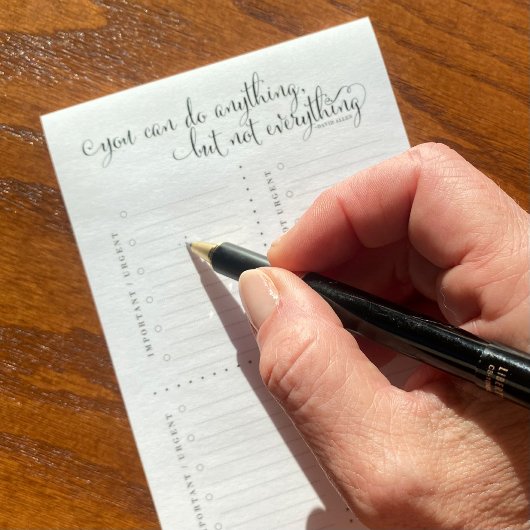 you can do anything,
but not everything
-DAVID ALLEN
IMPORTANT / URGENT
URGENT
/ URGENT